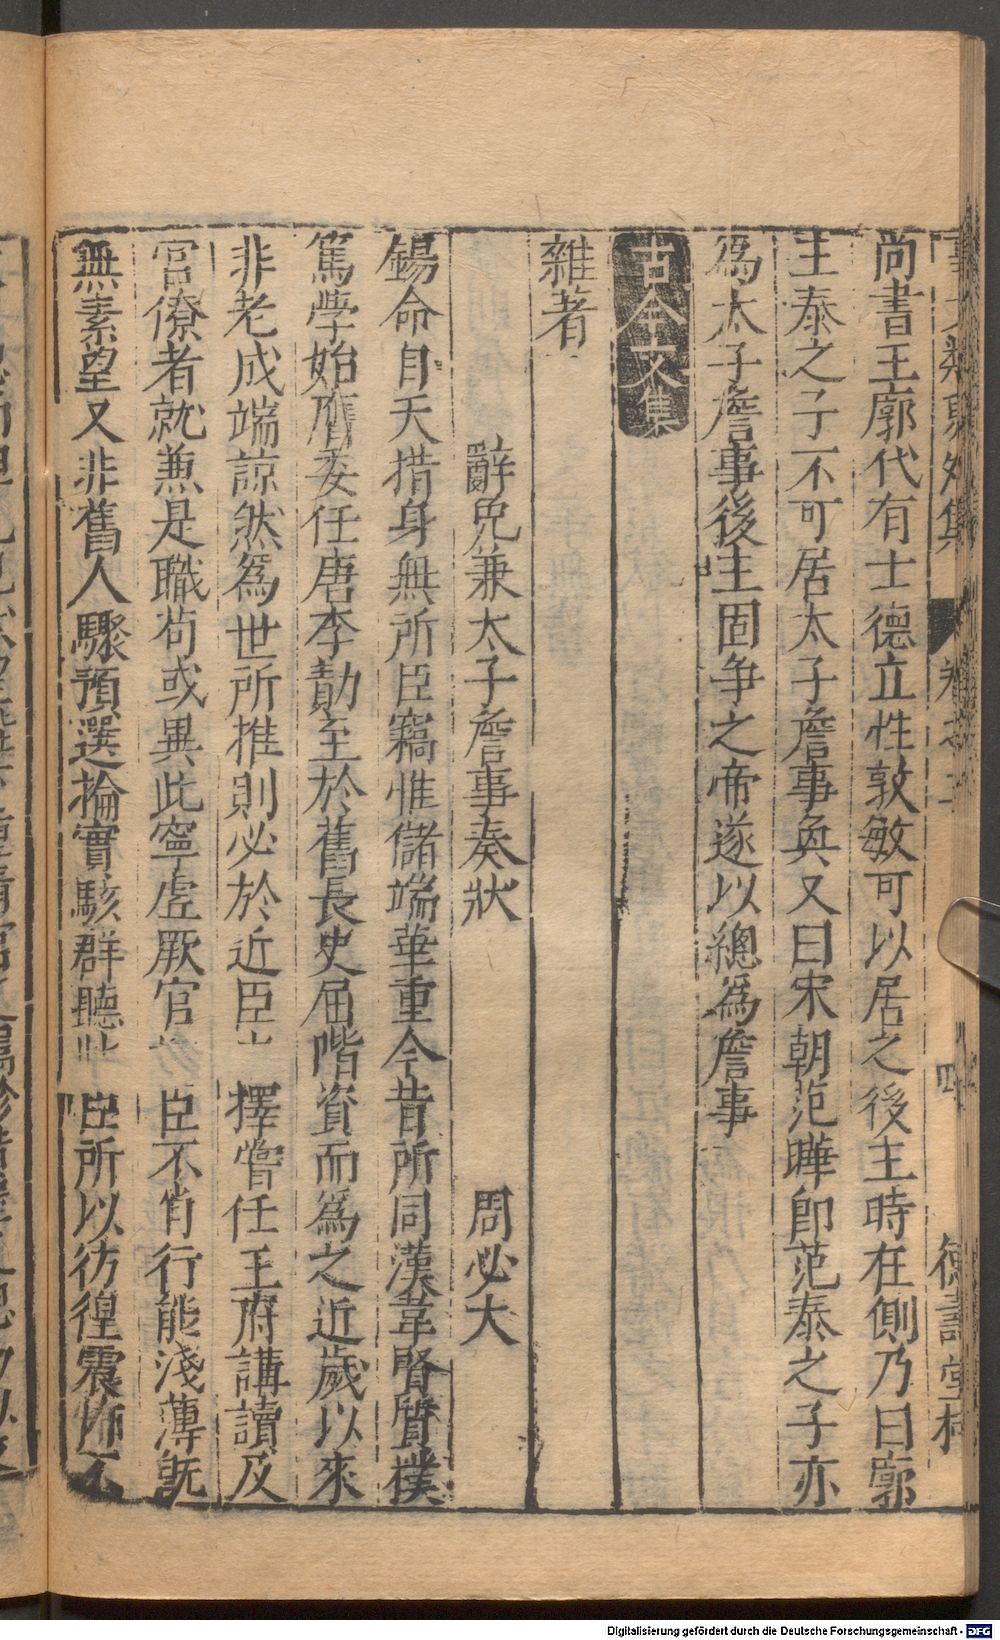 尚書王廓代有士德立性敦敏可以居之後主時在側乃曰廓
王泰之子不可居太子詹事奐又曰宋朝范曄即范泰之子亦
為太子詹事後主固爭之帝遂以總為詹事
古今文集
雜著
辭免兼太子詹事奏狀 周必大
錫命自天措身無所臣竊惟儲端華重今昔所同漢韋賢質樸
篤學始膺委任唐李勣至於舊長史屈階資而為之近歲以來
非老成端諒然為世所推則必於近臣 擇嘗任王府講讀及
宮僚者就兼是職茍或異此寧虛厥官 臣不肖行能淺薄既
無素望又非舊人驟預選掄實駭群聽此 臣所以彷徨震怖不
集 卷之 四 德壽堂梓
Digitalisierung gefördert durch die Deutsche Forschungsgemeinschaft - DFG